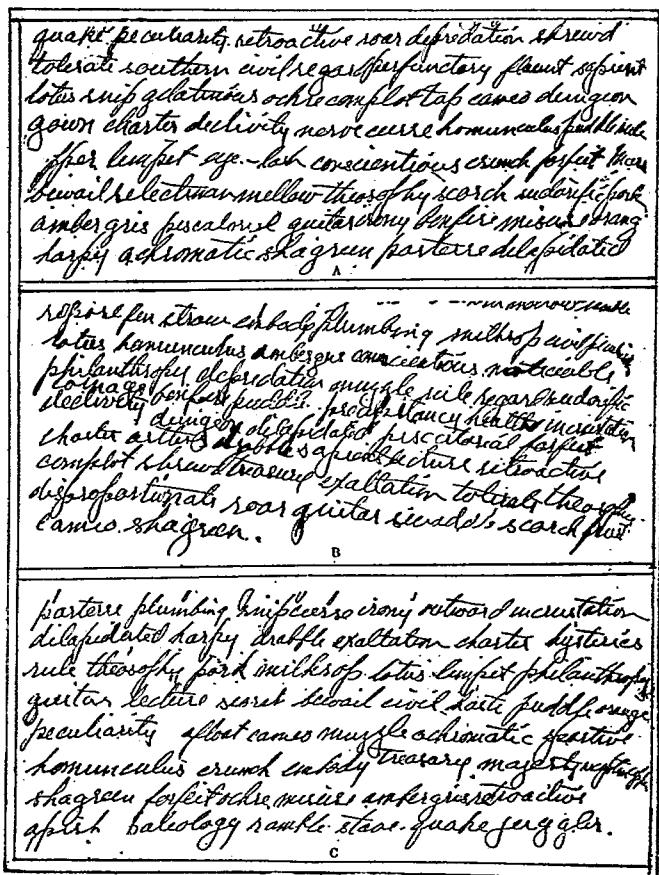 quake peculiarity retroactive roar depredation shrewd
tolerate southern civil regard perfunctory fluent sapient
lotus snip gelatinous ochre complot tap cameo dungeon
gown charter declivity nerve curse homunculus puddle
limpet eye-lash conscientious crunch forfeit
bewail selectman mellow theosophy scorch sudorific pork
ambergris piscatorial guitar irony bonfire misuse orange
harpy achromatic shagreen parterre delapidated
A
fen straw embody plumbing milksop civil
lotus homunculus ambergris conscientious noticeable
philanthropy depredation muzzle rule regard sudorific
coinage
declivity bonfire puddle precipitancy health incrustation
dungeon dilapidated piscatorial forfeit
charter lecture retroactive
complot shrewd treasury exaltation tolerate theosophy
disproportionate roar guitar scorch
cameo shagreen.
B
parterre plumbing snip curse irony outward incrustation
dilapidated harpy drabble exaltation charter hysterics
rule theosophy pork milksop lotus limpet philanthropy
guitar lecture secret bewail civil haste puddle orange
peculiarity afloat cameo muzzle achromatic
homunculus crunch embody treasury majesty
shagreen forfeit ochre misuse ambergris retroactive
apish ramble stave quake juggler.
C